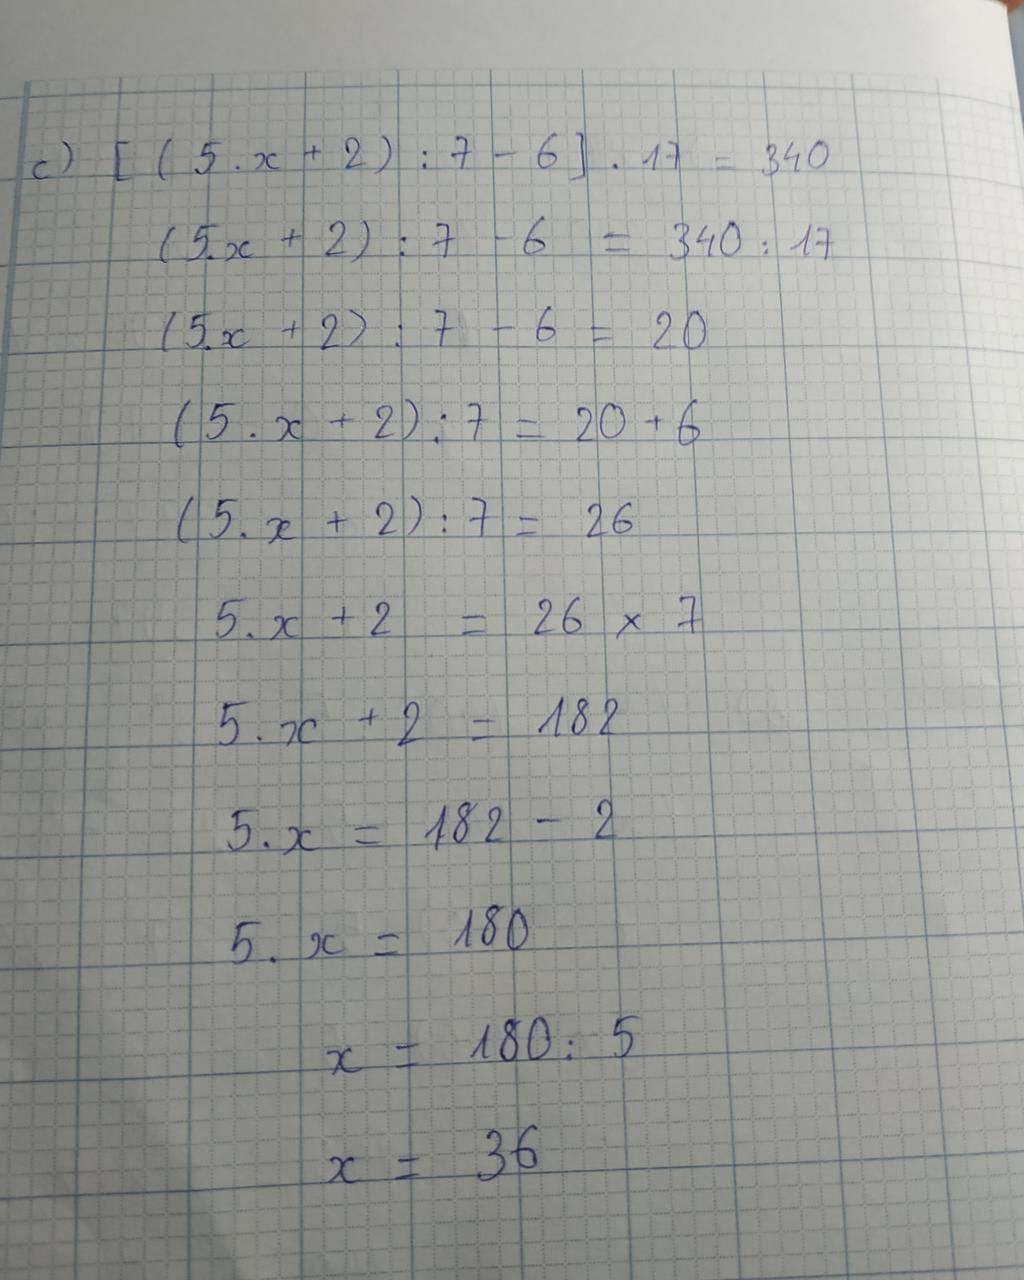 c) [ ( 5 . x + 2 ) : 7 - 6 ] . 17 = 340
( 5.x + 2 ) : 7 - 6 = 340 : 17
( 5.x + 2 ) : 7 - 6 = 20
( 5 . x + 2 ) : 7 = 20 + 6
( 5 . x + 2 ) : 7 = 26
5 . x + 2 = 26 x 7
5 . x + 2 = 182
5 . x = 182 - 2
5 . x = 180
x = 180 : 5
x = 36